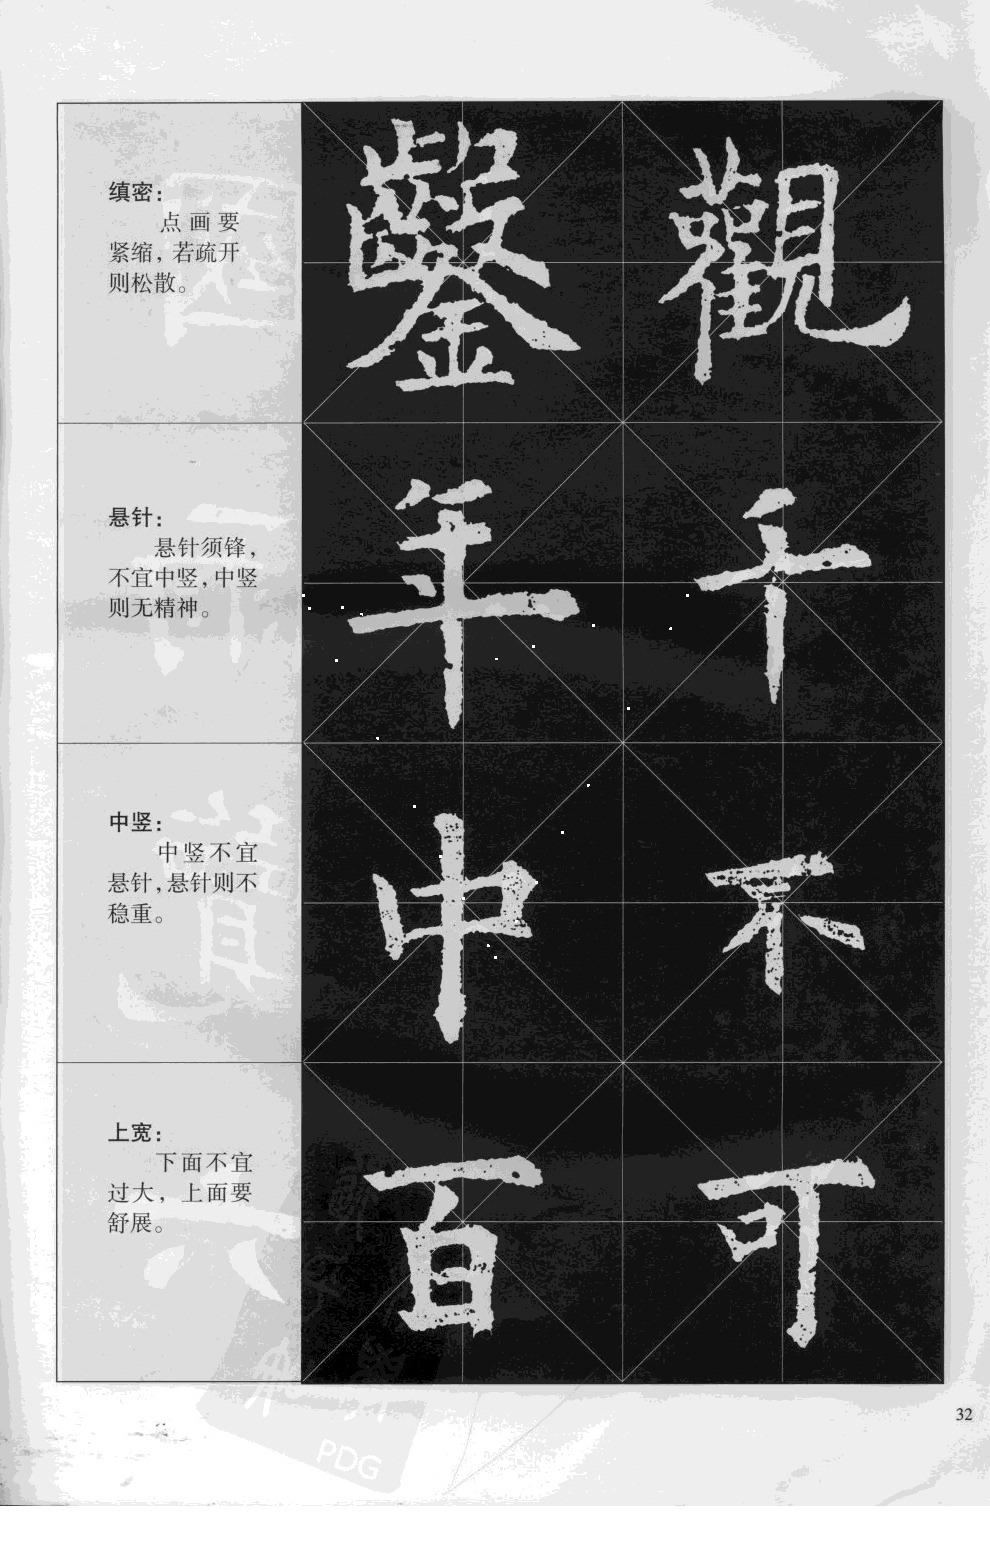 缜密：
点画要
紧缩，若疏开
则松散。
鑿 觀
悬针：
悬针须锋，
不宜中竖，中竖
则无精神。
年 千
中竖：
中竖不宜
悬针，悬针则不
稳重。
中 不
上宽：
下面不宜
过大，上面要
舒展。
百 可
32
PDG